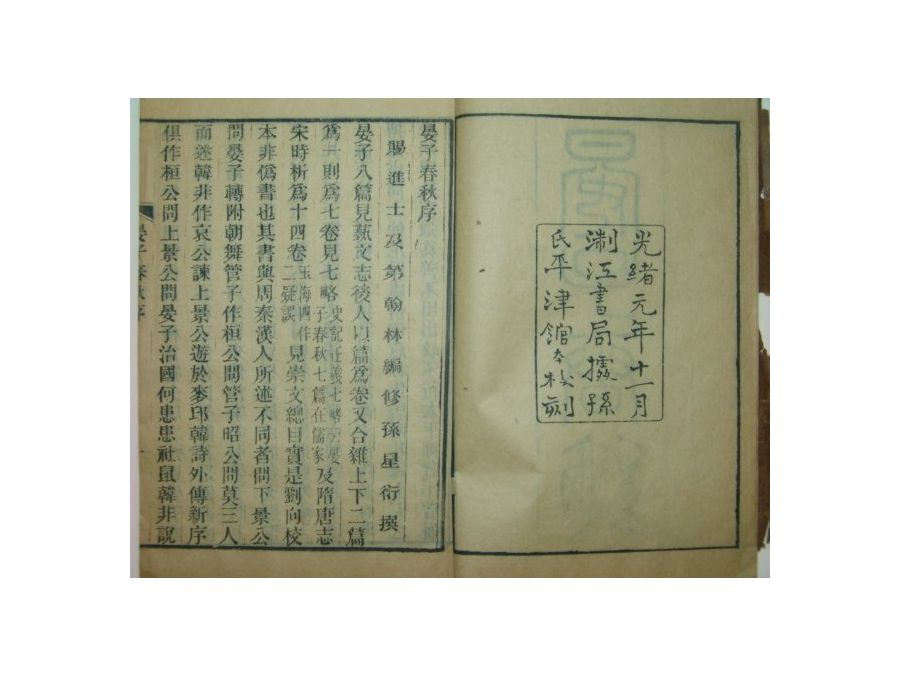 光緒元年十一月
淛江書局據孫
氏平津館本校刻
晏子春秋序
賜進士及第翰林編修孫星衍撰
晏子八篇見蓺文志後人以篇為卷又合雜上下二篇
為一則為七卷見七略史記正義七略云晏子春秋七篇在儒家及隋唐志
宋時析為十四卷玉海四作二疑誤見崇文總目實是劉向校
本非偽書也其書與周秦漢人所述不同者問下景公
問晏子轉附朝舞管子作桓公問管子昭公問莫三人
而迷韓非作哀公諫上景公遊於麥邱韓詩外傳新序
俱作桓公問上景公問晏子治國何患患社鼠韓非說
晏子春秋序